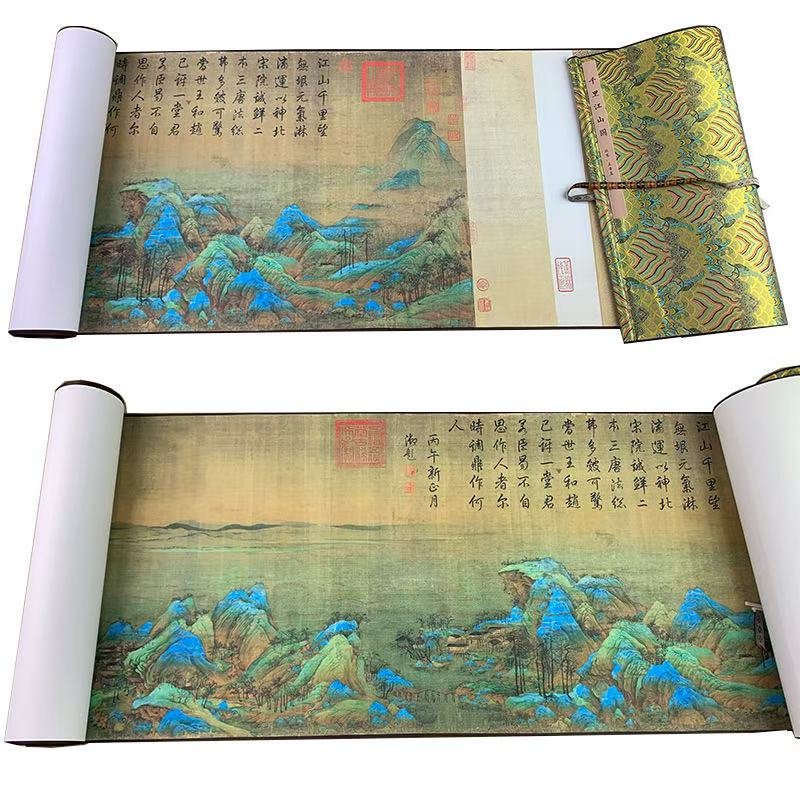 江山千里望
無垠元氣淋
漓運以神北
宋院誠鮮二
本三唐法總
弗多皴可驚
當世王和趙
已訝一堂君
若臣曷不自
思作人者爾
時調鼎作何
千里江山圖
江山千里望
無垠元氣淋
漓運以神北
宋院誠鮮二
本三唐法總
弗多皴可驚
當世王和趙
已訝一堂君
若臣曷不自
思作人者爾
時調鼎作何
人
丙午新正月
御題